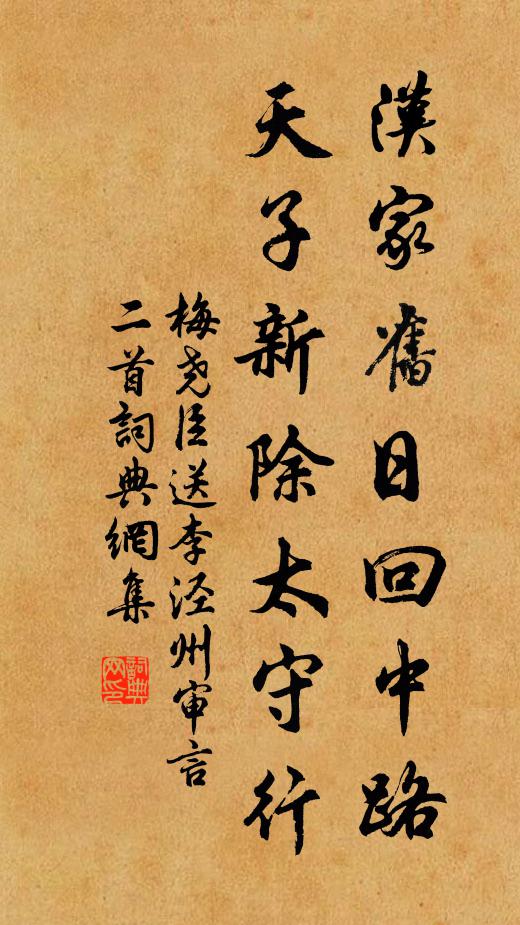 漢家舊日回中路
天子新除太守行
梅尧臣送李泾州审言
二首詞典網集
詞典
网印